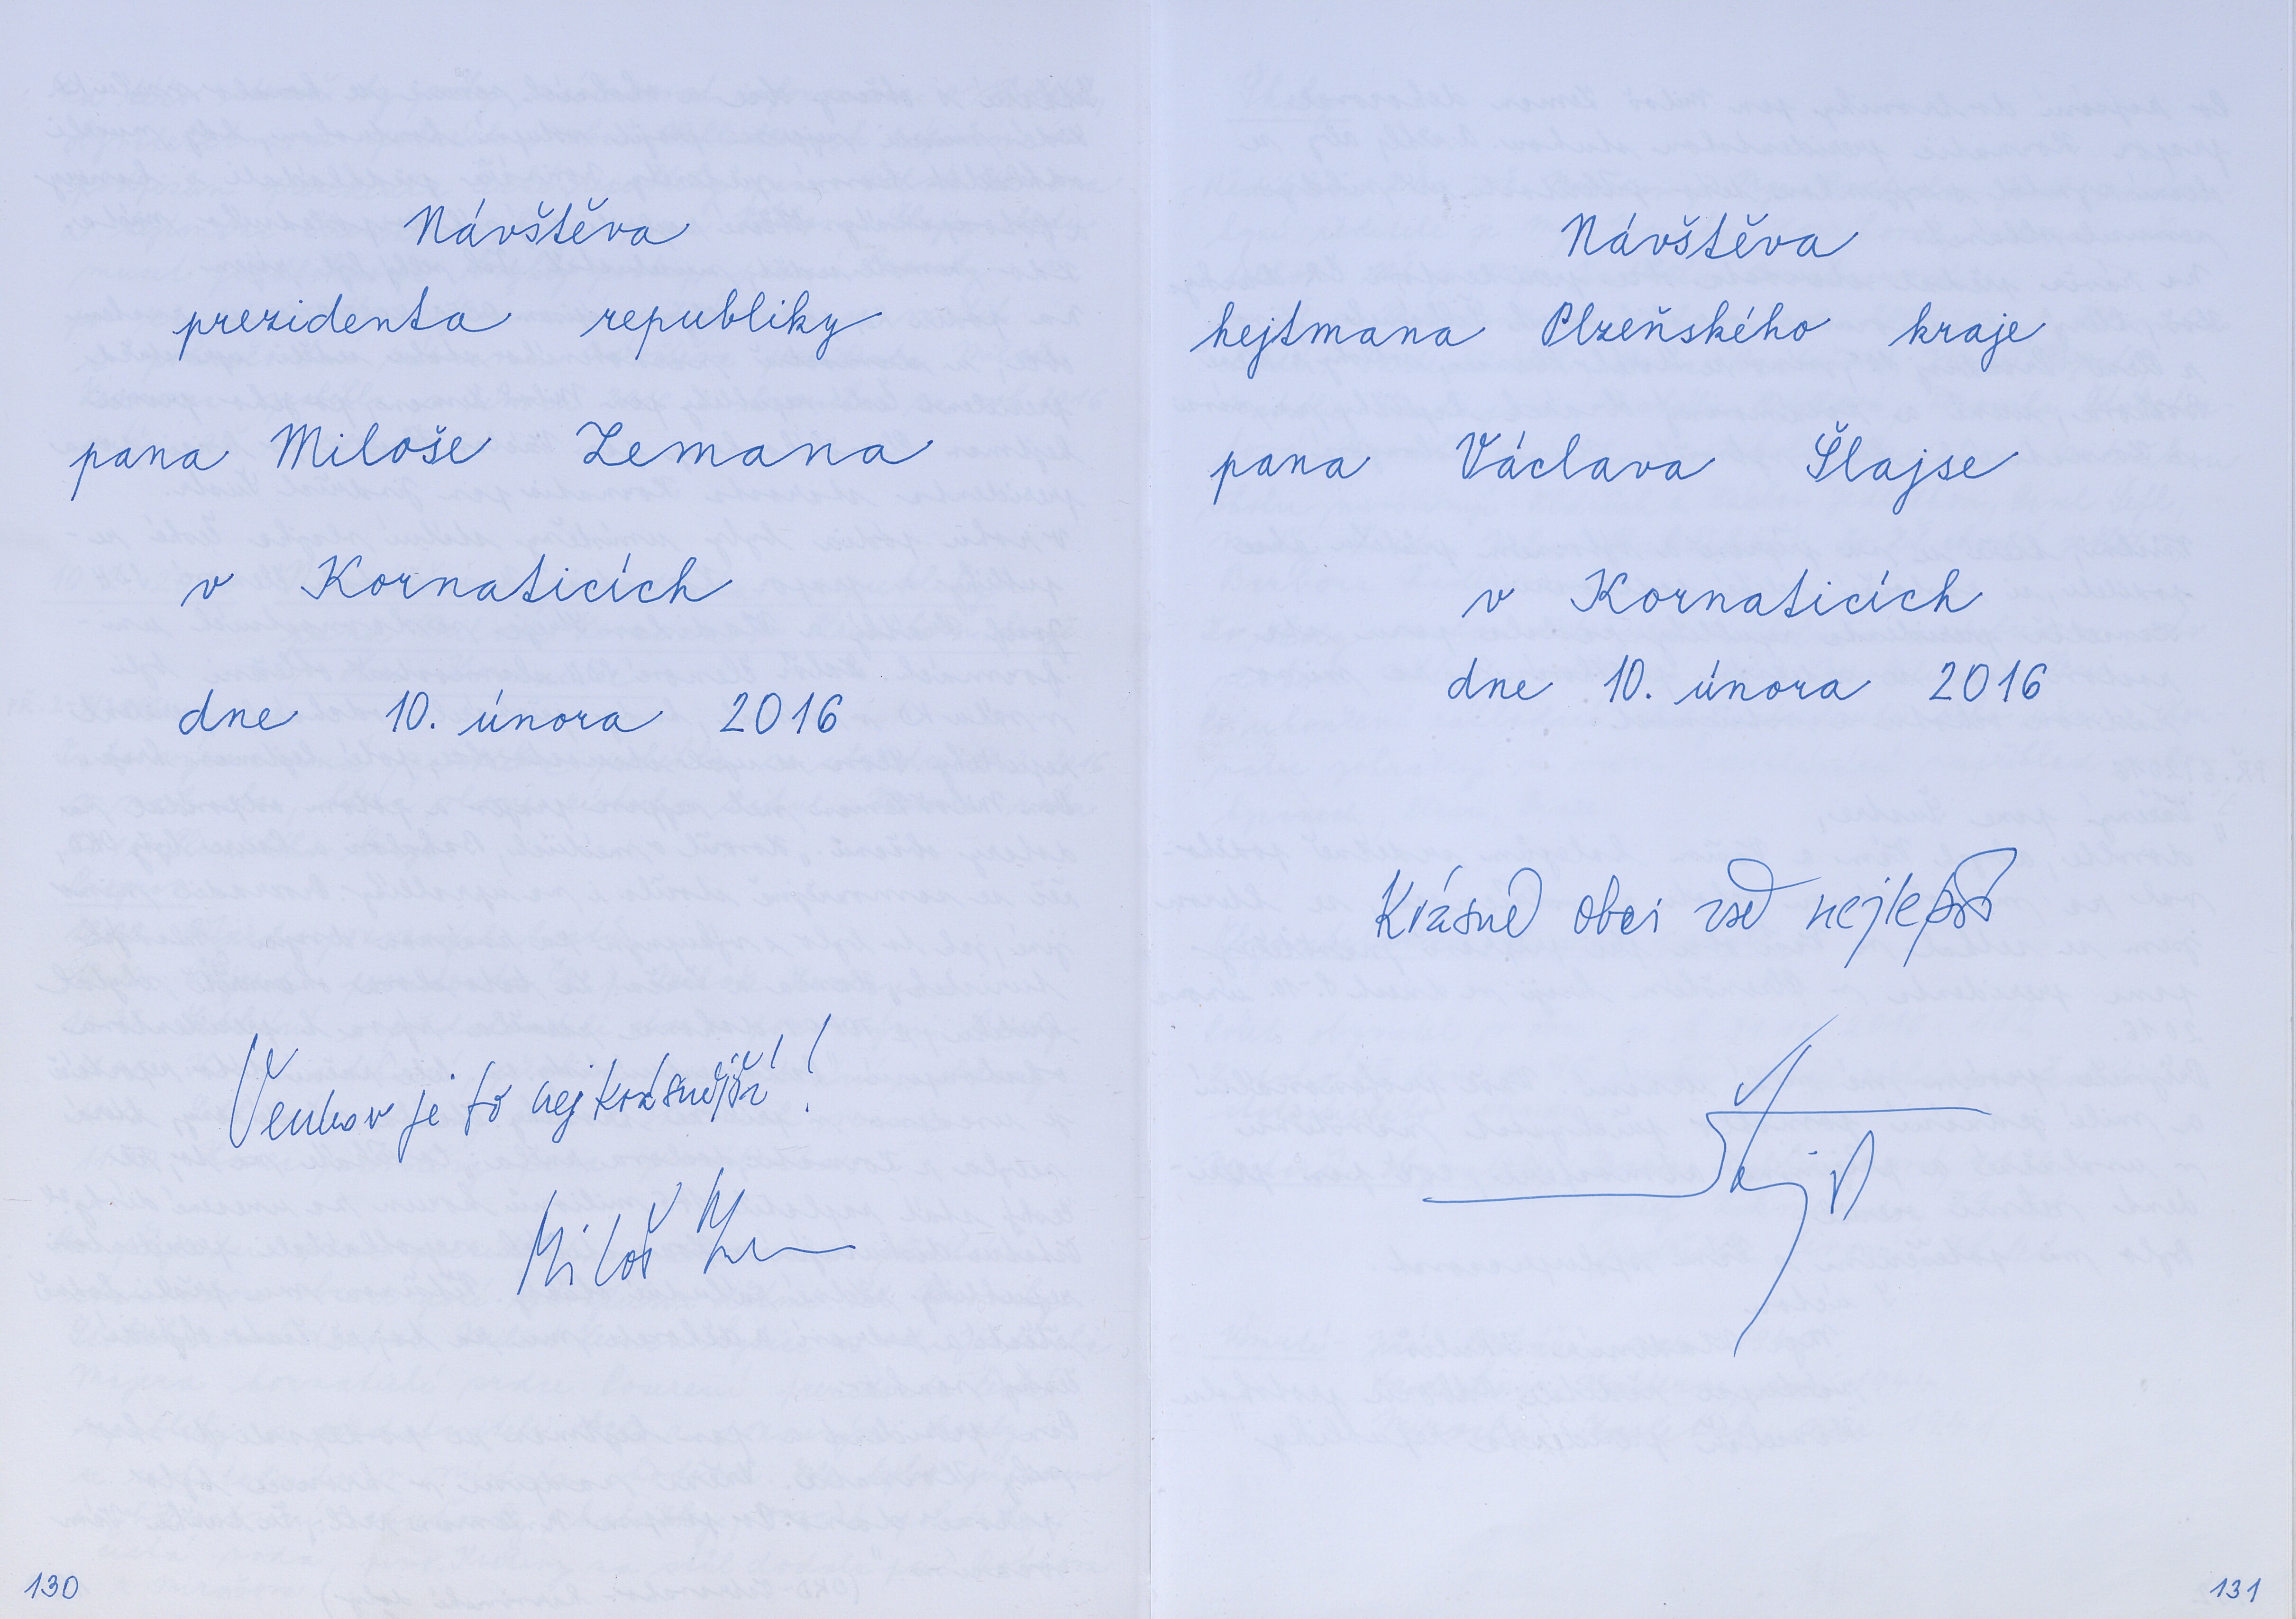 Návštěva
prezidenta republiky
pana Miloše Zemana
v Kornaticích
dne 10. února 2016
Venkov je to nejkrásnější!
Miloš Zeman
130
Návštěva
hejtmana Plzeňského kraje
pana Václava Šlajse
v Kornaticích
dne 10. února 2016
Krásné obci vše nejlepší
131